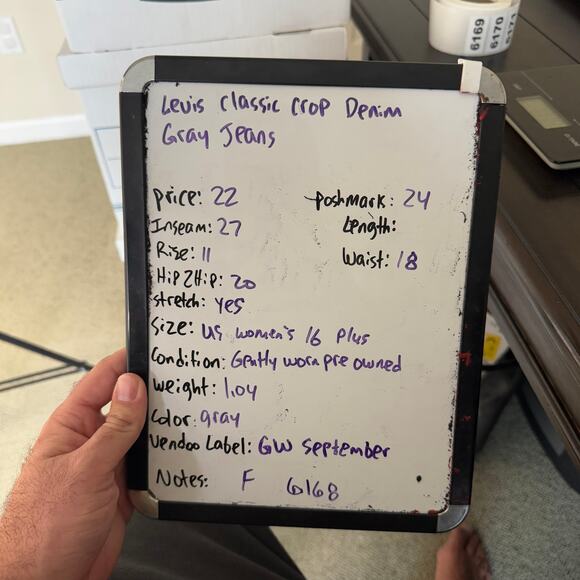 6169
6170
6171
Levis Classic Crop Denim
Gray Jeans
price: 22
poshmark: 24
Inseam: 27
Length:
Rise: 11
Waist: 18
Hip 2 Hip: 20
stretch: yes
Size: US women's 16 Plus
Condition: Gently worn pre owned
weight: 1.04
Color: gray
Vendoo Label: GW September
Notes: F 6168